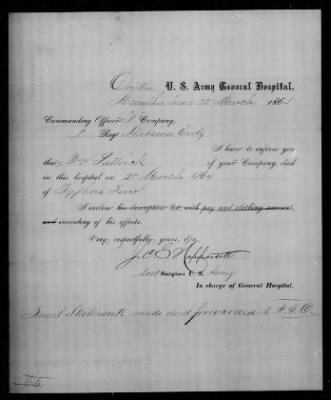 U. S. Army General Hospital,
Memphis Tenn 22 March 1864
Commanding Officer F Company,
1 Reg Alabama Cavly
I have to inform you
that Wm of your Company, died
in this hospital on 21 March 1864
of Typhoid Fever
I inclose his descriptive list, with pay and clothing account,
and inventory of his effects.
Very, respectfully, yours, &c.,
Surgeon U. S. Army
In charge of General Hospital.
Final Statements made and forwarded to A. G. O.